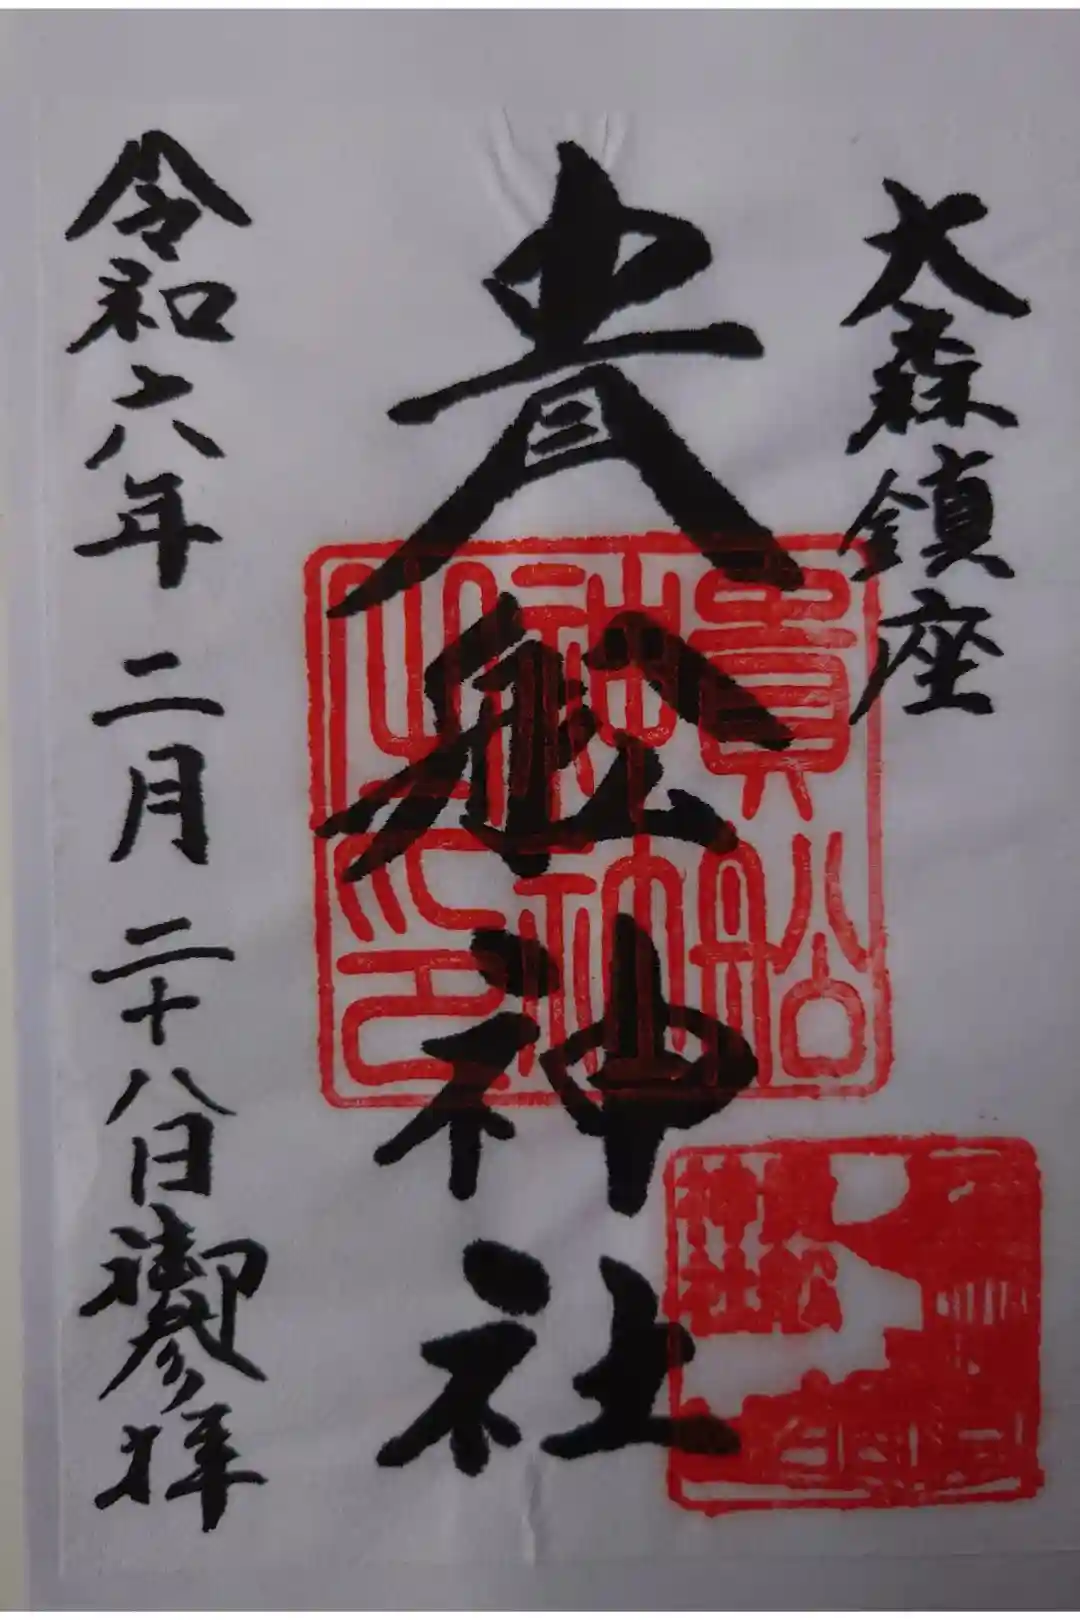 大森鎮座
貴舩神社
貴船神社之印
貴船
神社
令和六年 二月 二十八日 御参拝